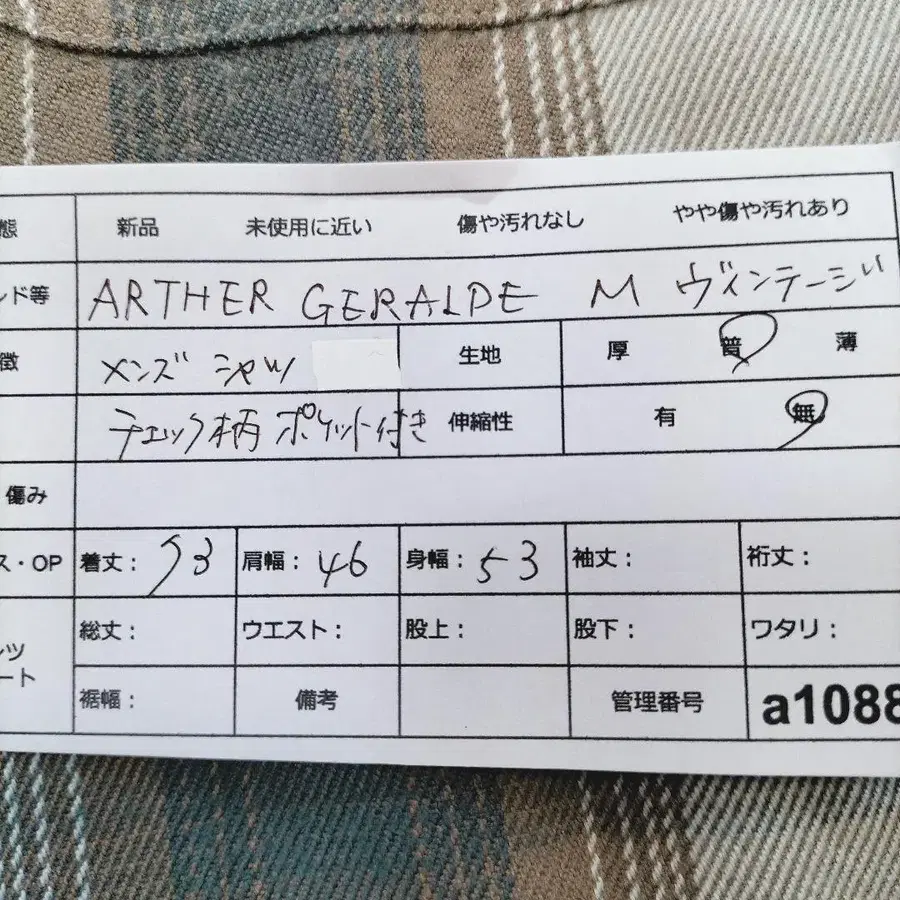 態 新品 未使用に近い 傷や汚れなし やや傷や汚れあり
ンド等 ARTHER GERALDE M ヴィンテージ
徴 メンズ シャツ 生地 厚 普 薄
チェック柄 ポケット付き 伸縮性 有 無
傷み
ス・OP 着丈: 73 肩幅: 46 身幅: 53 袖丈: 裄丈:
ンツ 総丈: ウエスト: 股上: 股下: ワタリ:
ート 裾幅: 備考 管理番号 a1088